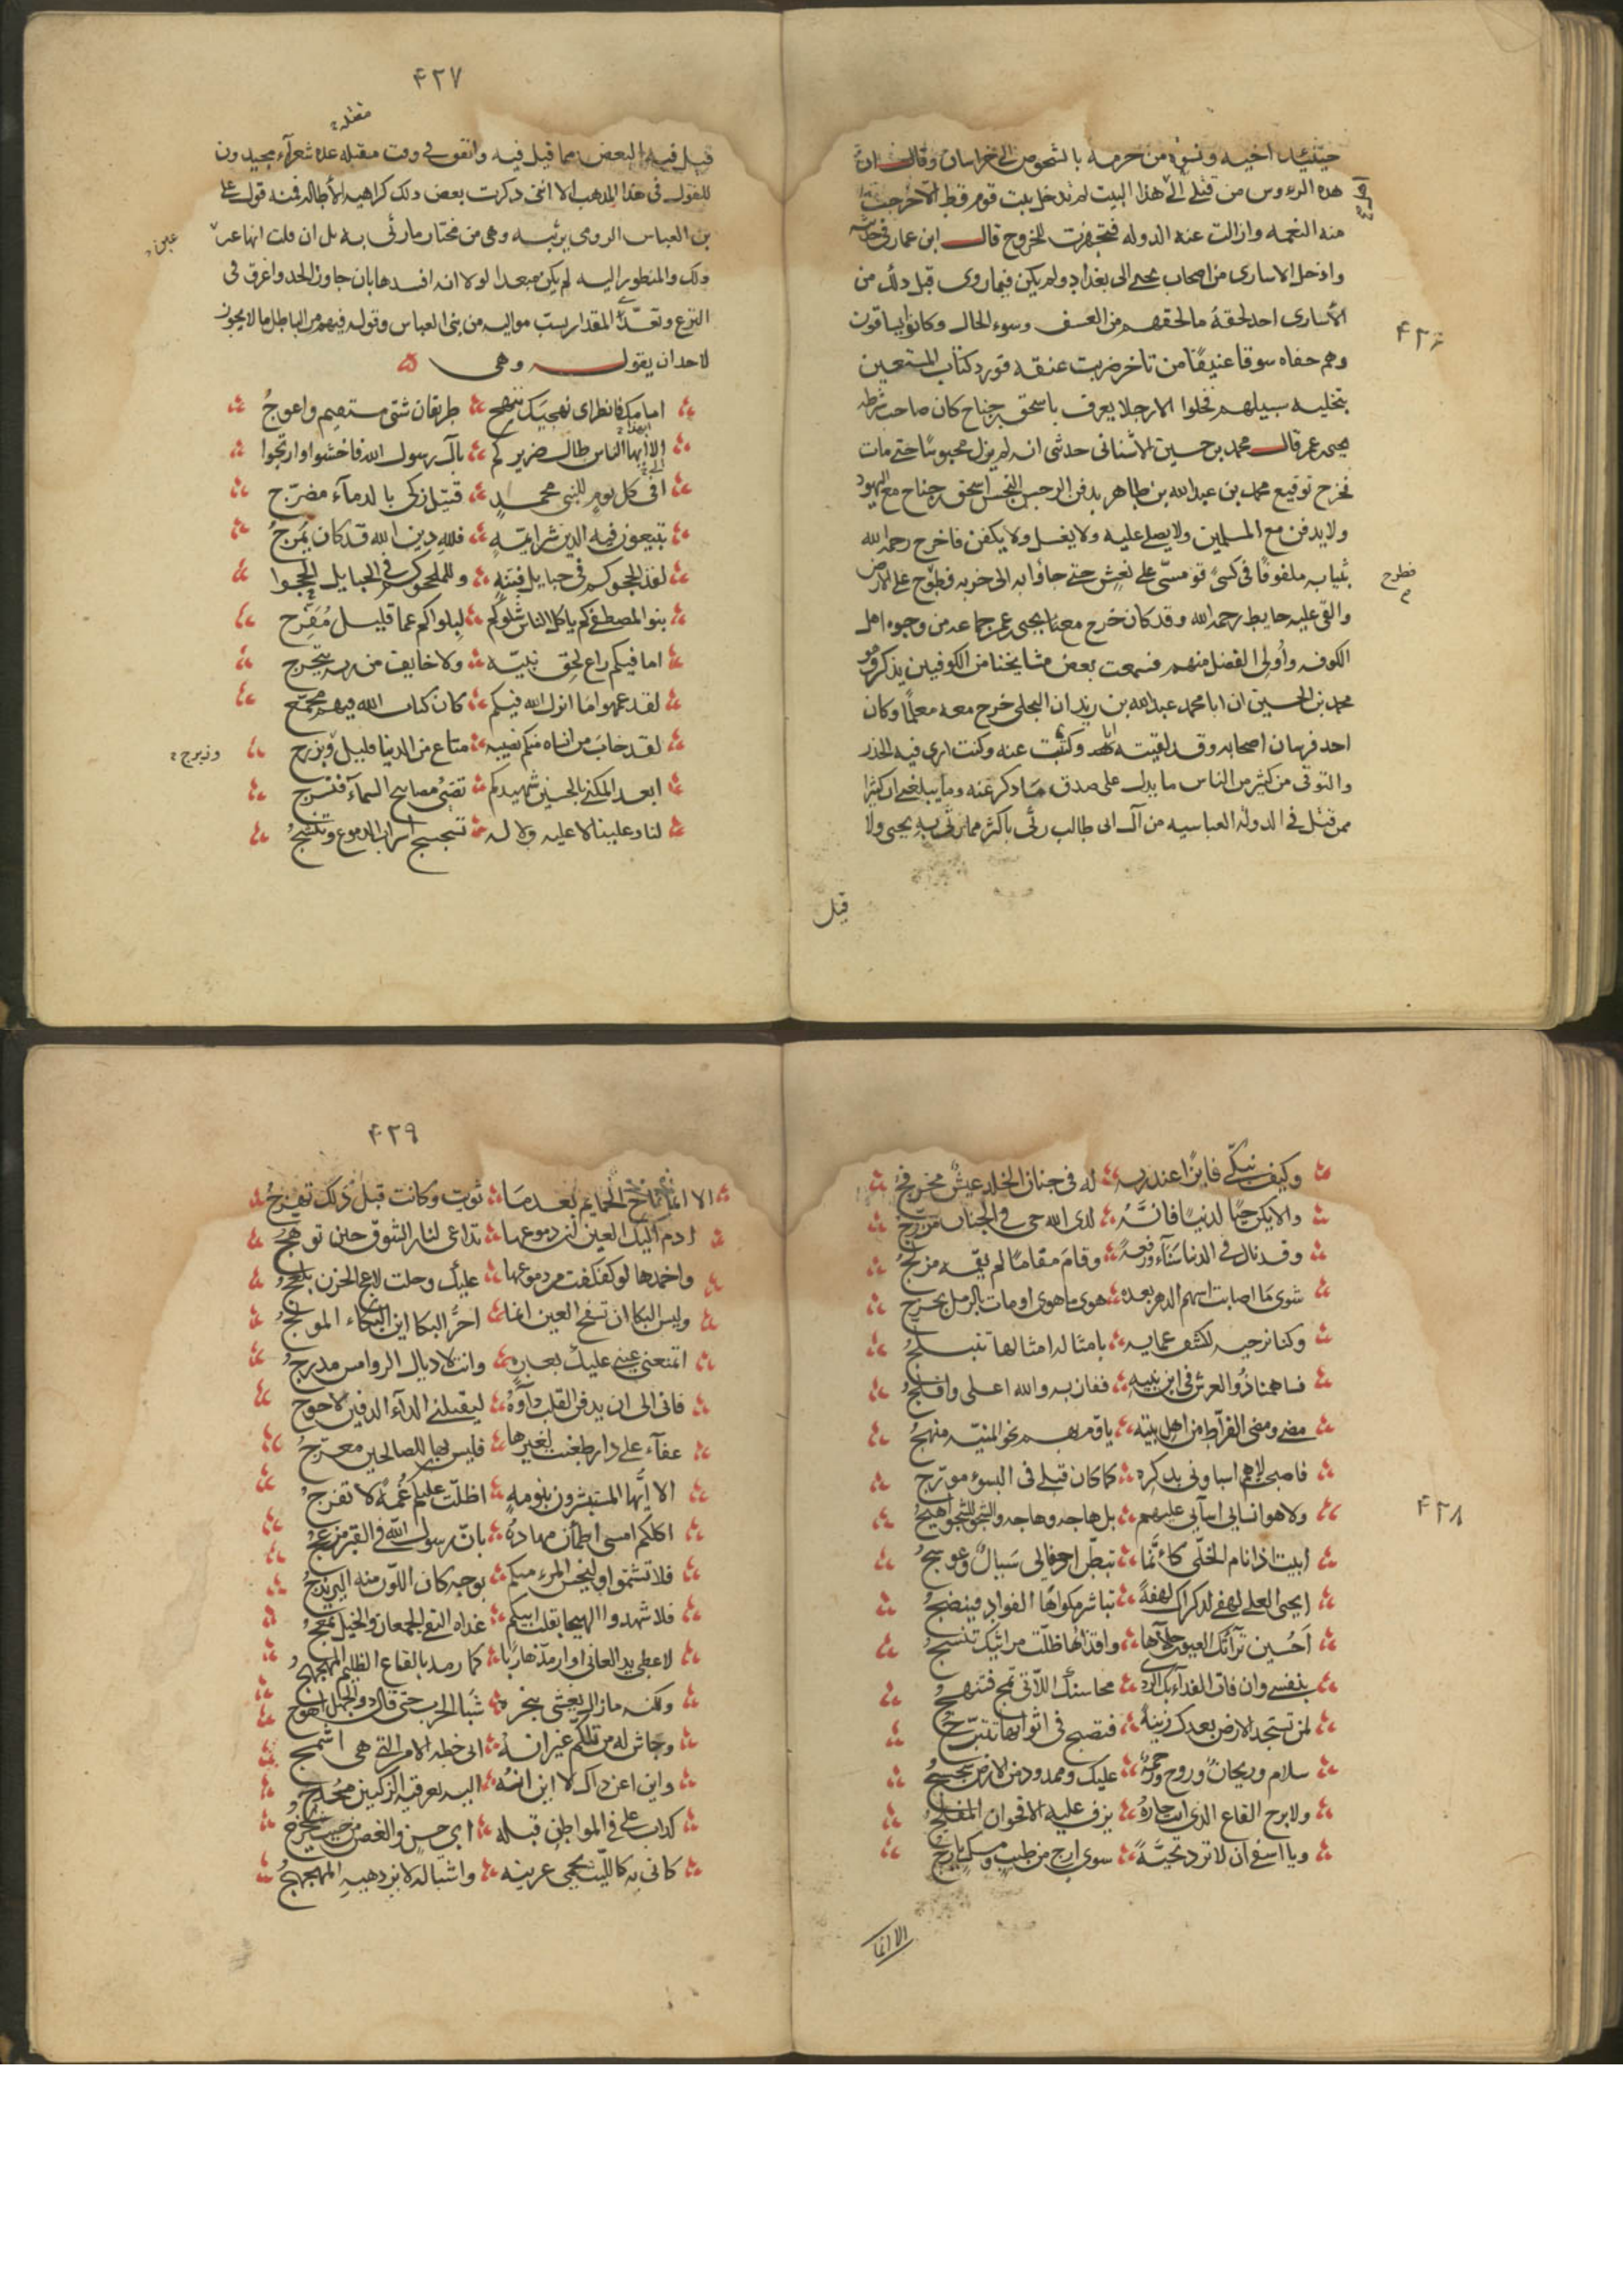 حينئيد اخيه ونسوة من حرمه بالشخوص الى خراسان وقال ان
هذه الروس من قتلى الى هذا البيت لم تدخل بيت قوم قط الا خرجت
منه النعمه وازالت عنه الدوله فتجهزت للخروج قال ابن عمار فى حديثه
وادخل الاسارى من اصحاب يحيى الى بغداد ولم يكن فيما روى قبل ذلك من
الأسارى احد لحقهُ ما لحقهم من العسف وسوء الحال وكانوا يساقون
وهم حفاه سوقا عنيفًا من تاخر ضربت عنقه فورد كتاب المستعين
بتخليه سبيلهم فخلوا الا رجلا يعرف باسحق بن جناح كان صاحب شرطه
يحيى بن عمر قال محمد بن حسين الأشنانى حدثنى انه لم يزل محبوسًا حتى مات
فخرج توقيع محمد بن عبد الله بن طاهر يدفن الرجس النجس اسحق بن جناح مع اليهود
ولا يدفن مع المسلمين ولا يصلى عليه ولا يغسل ولا يكفن فاخرج رحمه الله
بثيابه ملفوفًا فى كسى قومسىّ على نعش حتى جاؤا به الى خربه فطوح على الارض
فطرح
والقى عليه حايط رحمه الله وقد كان خرج مع يحيى بن عمر جماعه من وجوه اهل
الكوفه وأولى الفضل منهم فسمعت بعض مشايخنا من الكوفيين يذكر وهو
محمد بن الحسين ان ابا محمد عبد الله بن زيدان البجلى خرج معه معلمًا وكان
احد فرسان اصحابه وقد لقيته انا وكتبت عنه وكنت ارى فيه الحذر
والتوقى من كثير من الناس ما يدل على صدق ما ذكر عنه وما يبلغنى ان كثيرا
ممن قتل فى الدوله العباسيه من آل ابى طالب رثى باكثر مما رثى به يحيى ولا
قيل
۴۲۶
۴۲۷
قيل فيه البعض مما قيل فيه واتفق فى وقت مقبله عده شعرآء مجيدون
مقتله
للقول فى هذا المذهب الا اننى ذكرت بعض ذلك كراهيه الأطاله فمنه قول على
بن العباس الرومى يرثيه وهى من مختار ما رثى به بل ان قلت انها عين
عين
ذلك والمنظور اليه لم يكن مبعدا لولا انه افسدها بان جاوز الحد واغرق فى
النزع وتعدى المقدار بسب مواليه من بنى العباس وقوله فيهم من الباطل ما لا يجوز
لاحد ان يقول وهى
امامك فانظر اى نهجيك تنهج طريقان شتى مستقيم واعوجُ
الا ايهذا الناس طال ضريركم بآل رسول الله فاخشوا وارتجوا
افى كل يوم للنبى محمدٍ قتيل زكى بالدمآء مضرّج
تبيعون فيه الدين شرايمّةٍ فللهِ دين الله قد كان يَمرجُ
لقد الحجوكم فى حبايل فتنةٍ وللملحجوكم فى الحبايل الحجوا
بنو المصطفى كم ياكل الناس شلوكم لبلواكم عما قليل مُفَرّج
اما فيكم راع لحق نبيّه ولا خايف من ربه يتحرج
لقد عمهوا ما انزل الله فيكم كان كتاب الله فيهم ممجمج
لقد خابَ من انساه منكم نصيبه متاع من الدنيا قليل وزبرج
وزبرج
ابعد المكنى بالحسين شهيدكم تضئ مصابيح السمآء فتسرج
لنا وعلينا لا عليه ولا له تسجسج اسراب الدموع وتنشجُ
وكيف نبكّى فايزًا عند ربه له فى جنان الخلد عيشٌ مخرفجُ
والا يكن حيًا لدنيا فانّهُ لدى الله حى فى الجنان مزوّج
وقد نال فى الدنيا سَنآء ورفعةً وقامَ مقامًا لم يقمه مزلّجُ
شوى مَا اصابت اسهم الدهر بعده هوى ما هوى او مات بالرمل بحزج
وكنا نرجيه لكشف عمايه بامثاله امثالها تتبلجُ
فساهمنا ذُو العرش فى ابن نبيه ففاز به والله اعلى وافلجُ
مضى ومضى الفرّاط من اهل بيته ياؤم بهم نحو المنيّه منهجُ
فاصبحت لا هم اسبا ونى بذكره كما كان قبلى فى البسوء مورّج
ولا هو انسانى اسآىَ عليهم بل هاجه وهاجه والشجو للشجو اهيجُ
ابيت اذا نام الخلّى كانّما تبطّن اجفانى سَيالٌ وعوسجُ
ايحيى العلى لهفى لذكراك لهفةً تباشر مكواها الفوادِ فينضجُ
احين ترآئك العيون جلآءها واقذاءها ظلّت مراثيك تنسجُ
بنفسى وان فات الفدآء بك الردى محاسنك اللآتى تمج فتنهجُ
لمن تستجد الارض بعدك زينةً فتصبح فى اثوابها تتبرّجُ
سلام وريحانٌ وروح ورحمةٌ عليك وممدود من الارض سجسجُ
ولا برح القاع الذى انت جارهُ يرف عليه الاقحوان المفلجُ
ويا اسفى ان لا ترد تحيّةً سوى ارج من طيب رمسك يارجُ
الا انما
۴۲۸
۴۲۹
الا انما ناح الحمايم بعد مَا ثويت وكانت قبل ذلك تهزجُ
اذم اليك العين ان دموعها تداعى لنار الشوق حين توهّجُ
واحمدها لو كفكفت من دموعها عليك وخلت لاعج الحزن يلعجُ
وليس البكا ان تسفح العين انما احرّ البكا اين البكاء المولجُ
اتمنعنى عينى عليك بعبرةٍ وانت لاذيال الروامس مدرجُ
فانى الى ان يدفن القلب دآوهُ ليقتلنى الدآء الدفين لاحوج
عفآء على دار ظعنت لغيرها فليس بها للصالحين معرّجُ
الا ايّها المستبشرون بيومهِ اظلّت عليكم غُمّهٌ لا تفرجُ
اكلكم امسى اطمأن مهادهُ بان رسول الله فى القبر مزعجُ
فلا تشمتوا وليخس المرء منكم بوجه كان اللون منه اليرندجُ
فلا شهدوا الهيجا بقلب ابيكم غداه التقى الجمعان والخيل تمعجُ
لاعطى يد العانى او ارمدّ هاربًا كما رمد بالقاع الظليم المهجهجُ
ولكنه ما زال يغشى بنحره شبا الحرب حتى قال ذو الجهل اهوجُ
وحاش له من تلكم غير انه ابى خطه الامر التى هى اسمج
واين اعن ذاك لا اين انهُ اليه بعرقيه الزكيين محوجُ
كداب على فى المواطن قبله ابى حسن والغصن من حيث يخرجُ
كانى به كالليث يحمى عرينه واشباله لا يزدهيهِ المهجهجُ